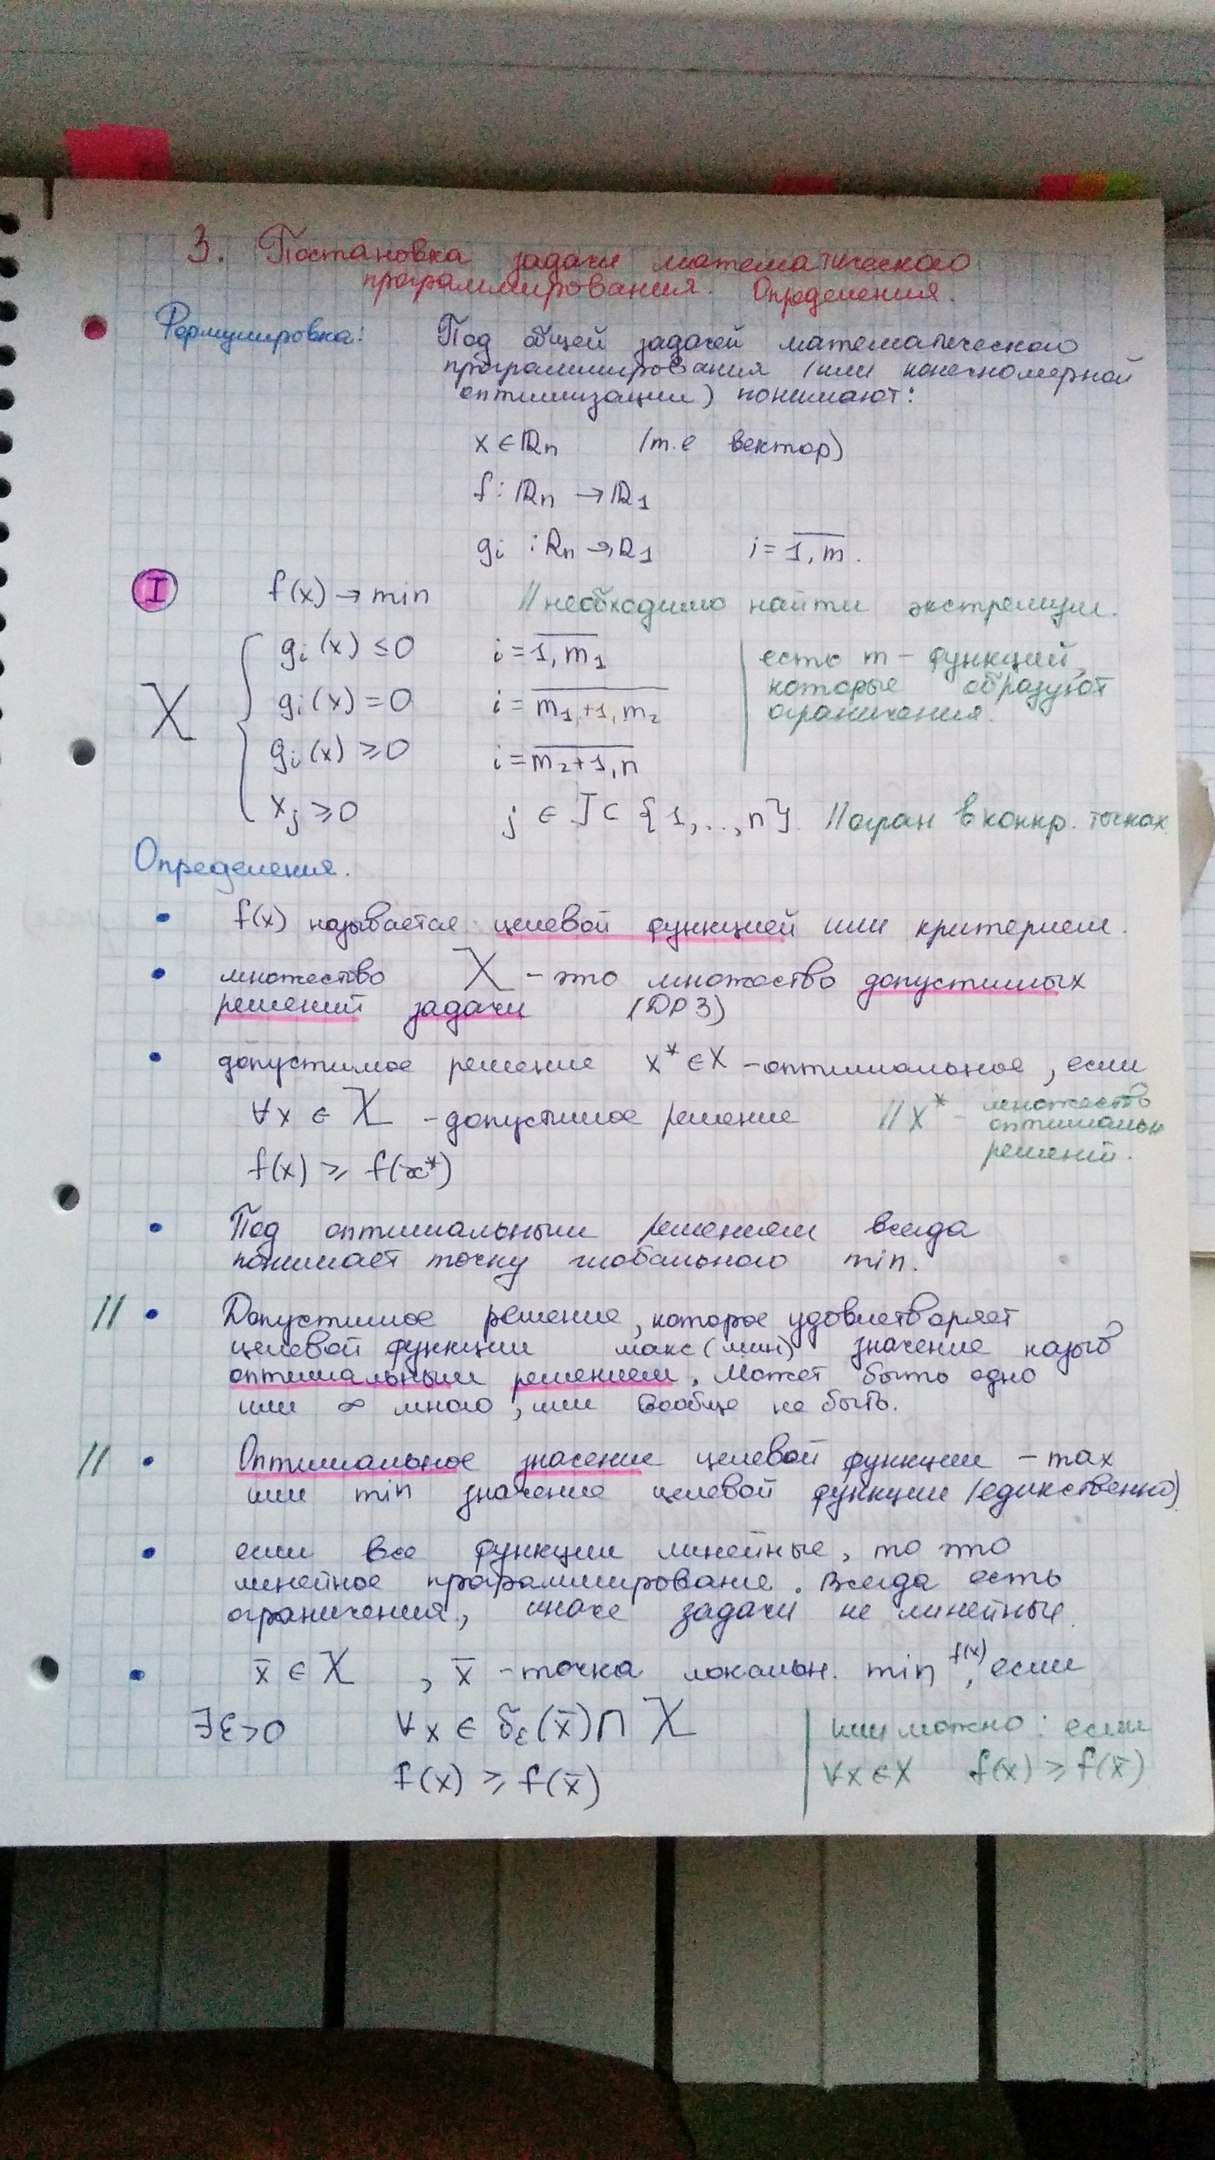 3. Постановка задачи математического
программирования. Определения.
Формулировка: Под общей задачей математического
программирования (или конечномерной
оптимизации) понимают:
x ∈ ℝn (т.е вектор)
f : ℝn → ℝ1
gi : ℝn → ℝ1 i = 1,m.
I f(x) → min //необходимо найти экстремум.
gi(x) ≤ 0 i = 1, m1 есть m - функций,
X gi(x) = 0 i = m1+1, m2 которые образуют
ограничения.
gi(x) ≥ 0 i = m2+1, n
xj ≥ 0 j ∈ J ⊂ {1,...,n}. //огран в конкр. точках
Определения.
• f(x) называется целевой функцией или критерием.
• множество X - это множество допустимых
решений задачи (ДРЗ)
• допустимое решение x* ∈ X - оптимальное, если
∀x ∈ X - допустимое решение // X* - множеств
оптимальн
решений.
f(x) ≥ f(x*)
• Под оптимальным решением всегда
понимает точку глобального min.
// • Допустимое решение, которое удовлетворяет
целевой функции макс (мин) значение назыв
оптимальным решением. Может быть одно
или ∞ много, или вообще не быть.
// • Оптимальное значение целевой функции - max
или min значение целевой функции (единственно)
• если все функции линейные, то это
линейное программирование. Всегда есть
ограничения, иначе задачи не линейные.
• x̄ ∈ X , x̄ - точка локальн. min f(x), если
∃ε>0 ∀x ∈ δε(x̄) ∩ X или можно: если
f(x) ≥ f(x̄) ∀x ∈ X f(x) ≥ f(x̄)